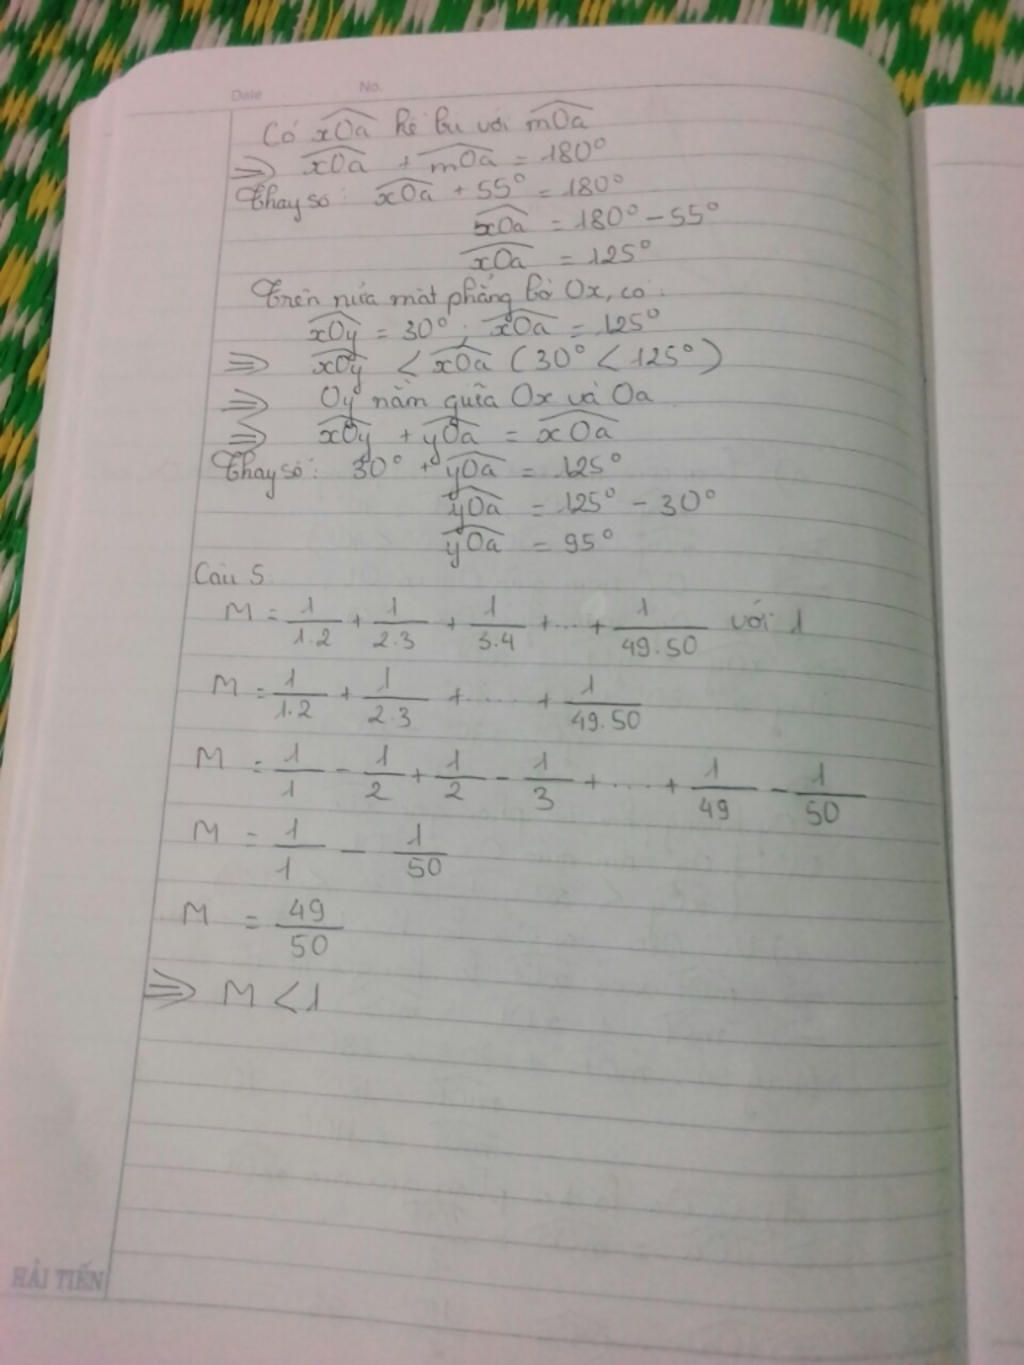 Date No.
Có xOa kề bù với mOa
=> xOa + mOa = 180°
Thay số: xOa + 55° = 180°
xOa = 180° - 55°
xOa = 125°
Trên nửa mặt phẳng bờ Ox, có:
xOy = 30°; xOa = 125°
=> xOy < xOa (30° < 125°)
=> Oy nằm giữa Ox và Oa
=> xOy + yOa = xOa
Thay số: 30° + yOa = 125°
yOa = 125° - 30°
yOa = 95°
Câu 5:
M = 1/1.2 + 1/2.3 + 1/3.4 + ... + 1/49.50 với 1
M = 1/1.2 + 1/2.3 + ..... + 1/49.50
M = 1/1 - 1/2 + 1/2 - 1/3 + .... + 1/49 - 1/50
M = 1/1 - 1/50
M = 49/50
=> M < 1
HẢI TIẾN